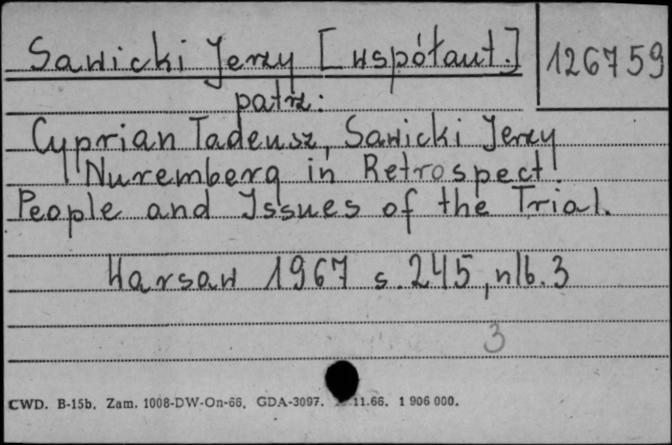 Sawicki Jerzy [współaut.] 126759
patrz:
Cyprian Tadeusz, Sawicki Jerzy
Nuremberg in Retrospect.
People and Issues of the Trial.
Warsaw 1967 s. 245, nlb. 3
3
CWD. B-15b. Zam. 1008-DW-On-66. GDA-3097. .11.66. 1 906 000.